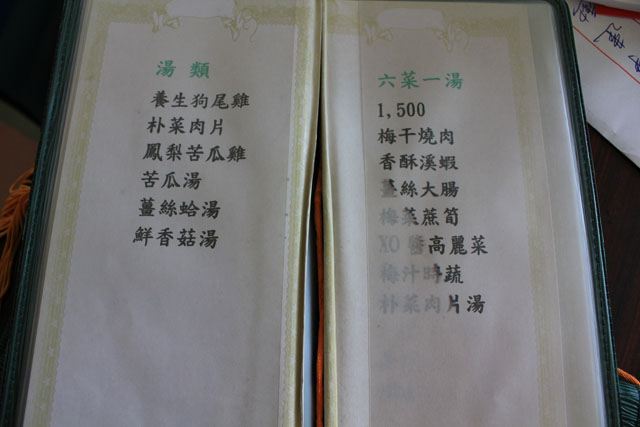 湯 類
養生狗尾雞
朴菜肉片
鳳梨苦瓜雞
苦瓜湯
薑絲蛤湯
鮮香菇湯
六菜一湯
1,500
梅干燒肉
香酥溪蝦
薑絲大腸
梅菜蔴筍
XO 醬高麗菜
梅汁時蔬
朴菜肉片湯